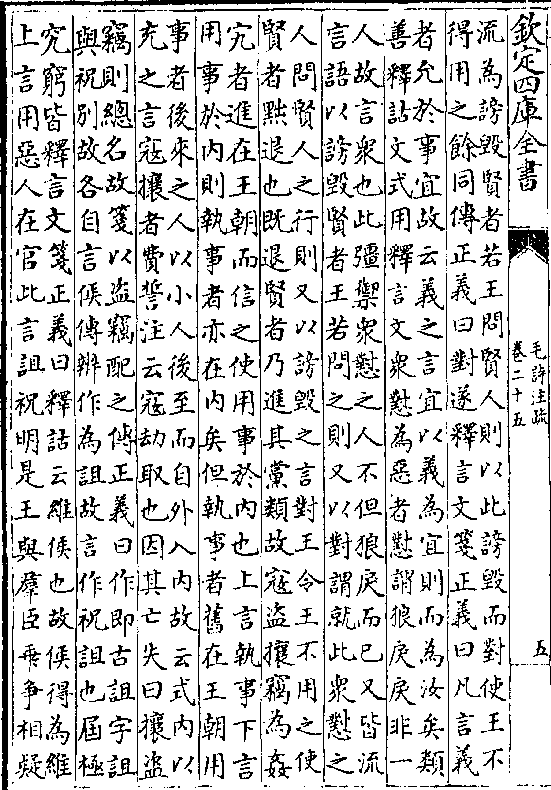 欽定四庫全書
毛詩注疏
卷二十五
五
流為謗毀賢者若王問賢人則以此謗毀而對使王不
得用之餘同傳正義曰對遂釋言文箋正義曰凡言義
者允於事宜故云義之言宜以義為宜則而為汝矣類
善釋詁文式用釋言文衆懟為惡者懟謂狼戾戾非一
人故言衆也此彊禦衆懟之人不但狼戾而已又皆流
言語以謗毀賢者王若問之則又以對謂就此衆懟之
人問賢人之行則又以謗毀之言對王令王不用之使
賢者黜退也既退賢者乃進其黨類故寇盜攘竊為姦
宄者進在王朝而信之使用事於內也上言執事下言
用事於內則執事者亦在內矣但執事者舊在王朝用
事者後來之人以小人後至而自外入內故云式內以
充之言寇攘者費誓注云寇劫取也因其亡失曰攘盜
竊則總名故箋以盜竊配之傳正義曰作即古詛字詛
與祝別故各自言侯傳辨作為詛故言作祝詛也屆極
究窮皆釋言文箋正義曰釋詁云維侯也故侯得為維
上言用惡人在官此言詛祝明是王與羣臣乖爭相疑